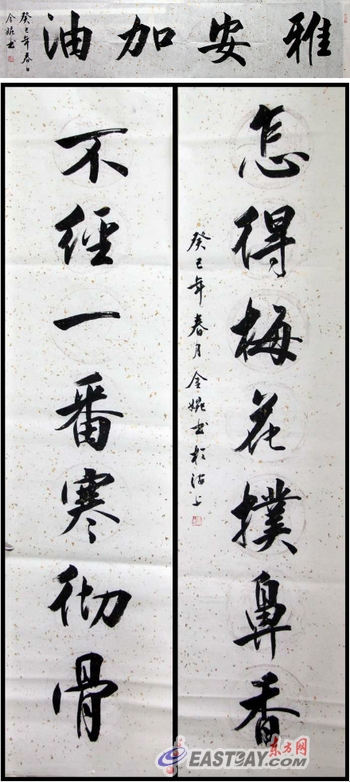 雅安加油
癸巳年春日
不經一番寒彻骨
怎得梅花撲鼻香
癸巳年春月金焜书於沪上
东方网
EASTDAY.COM